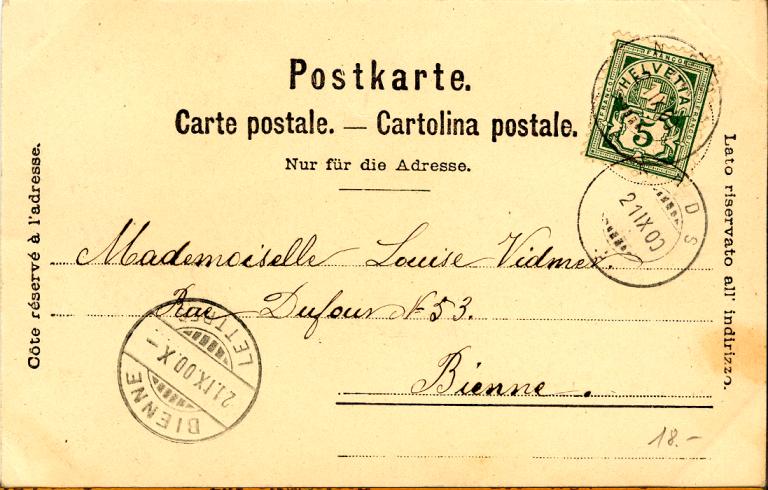 Postkarte.
Carte postale. — Cartolina postale.
Nur für die Adresse.
Côté réservé à l'adresse.
Lato riservato all' indirizzo.
FRANCO
HELVETIA
5
21 IX 00
Mademoiselle Louise Vidmer.
Rue Dufour No 53.
Bienne.
BIENNE
21.IX.00.X-
18.-